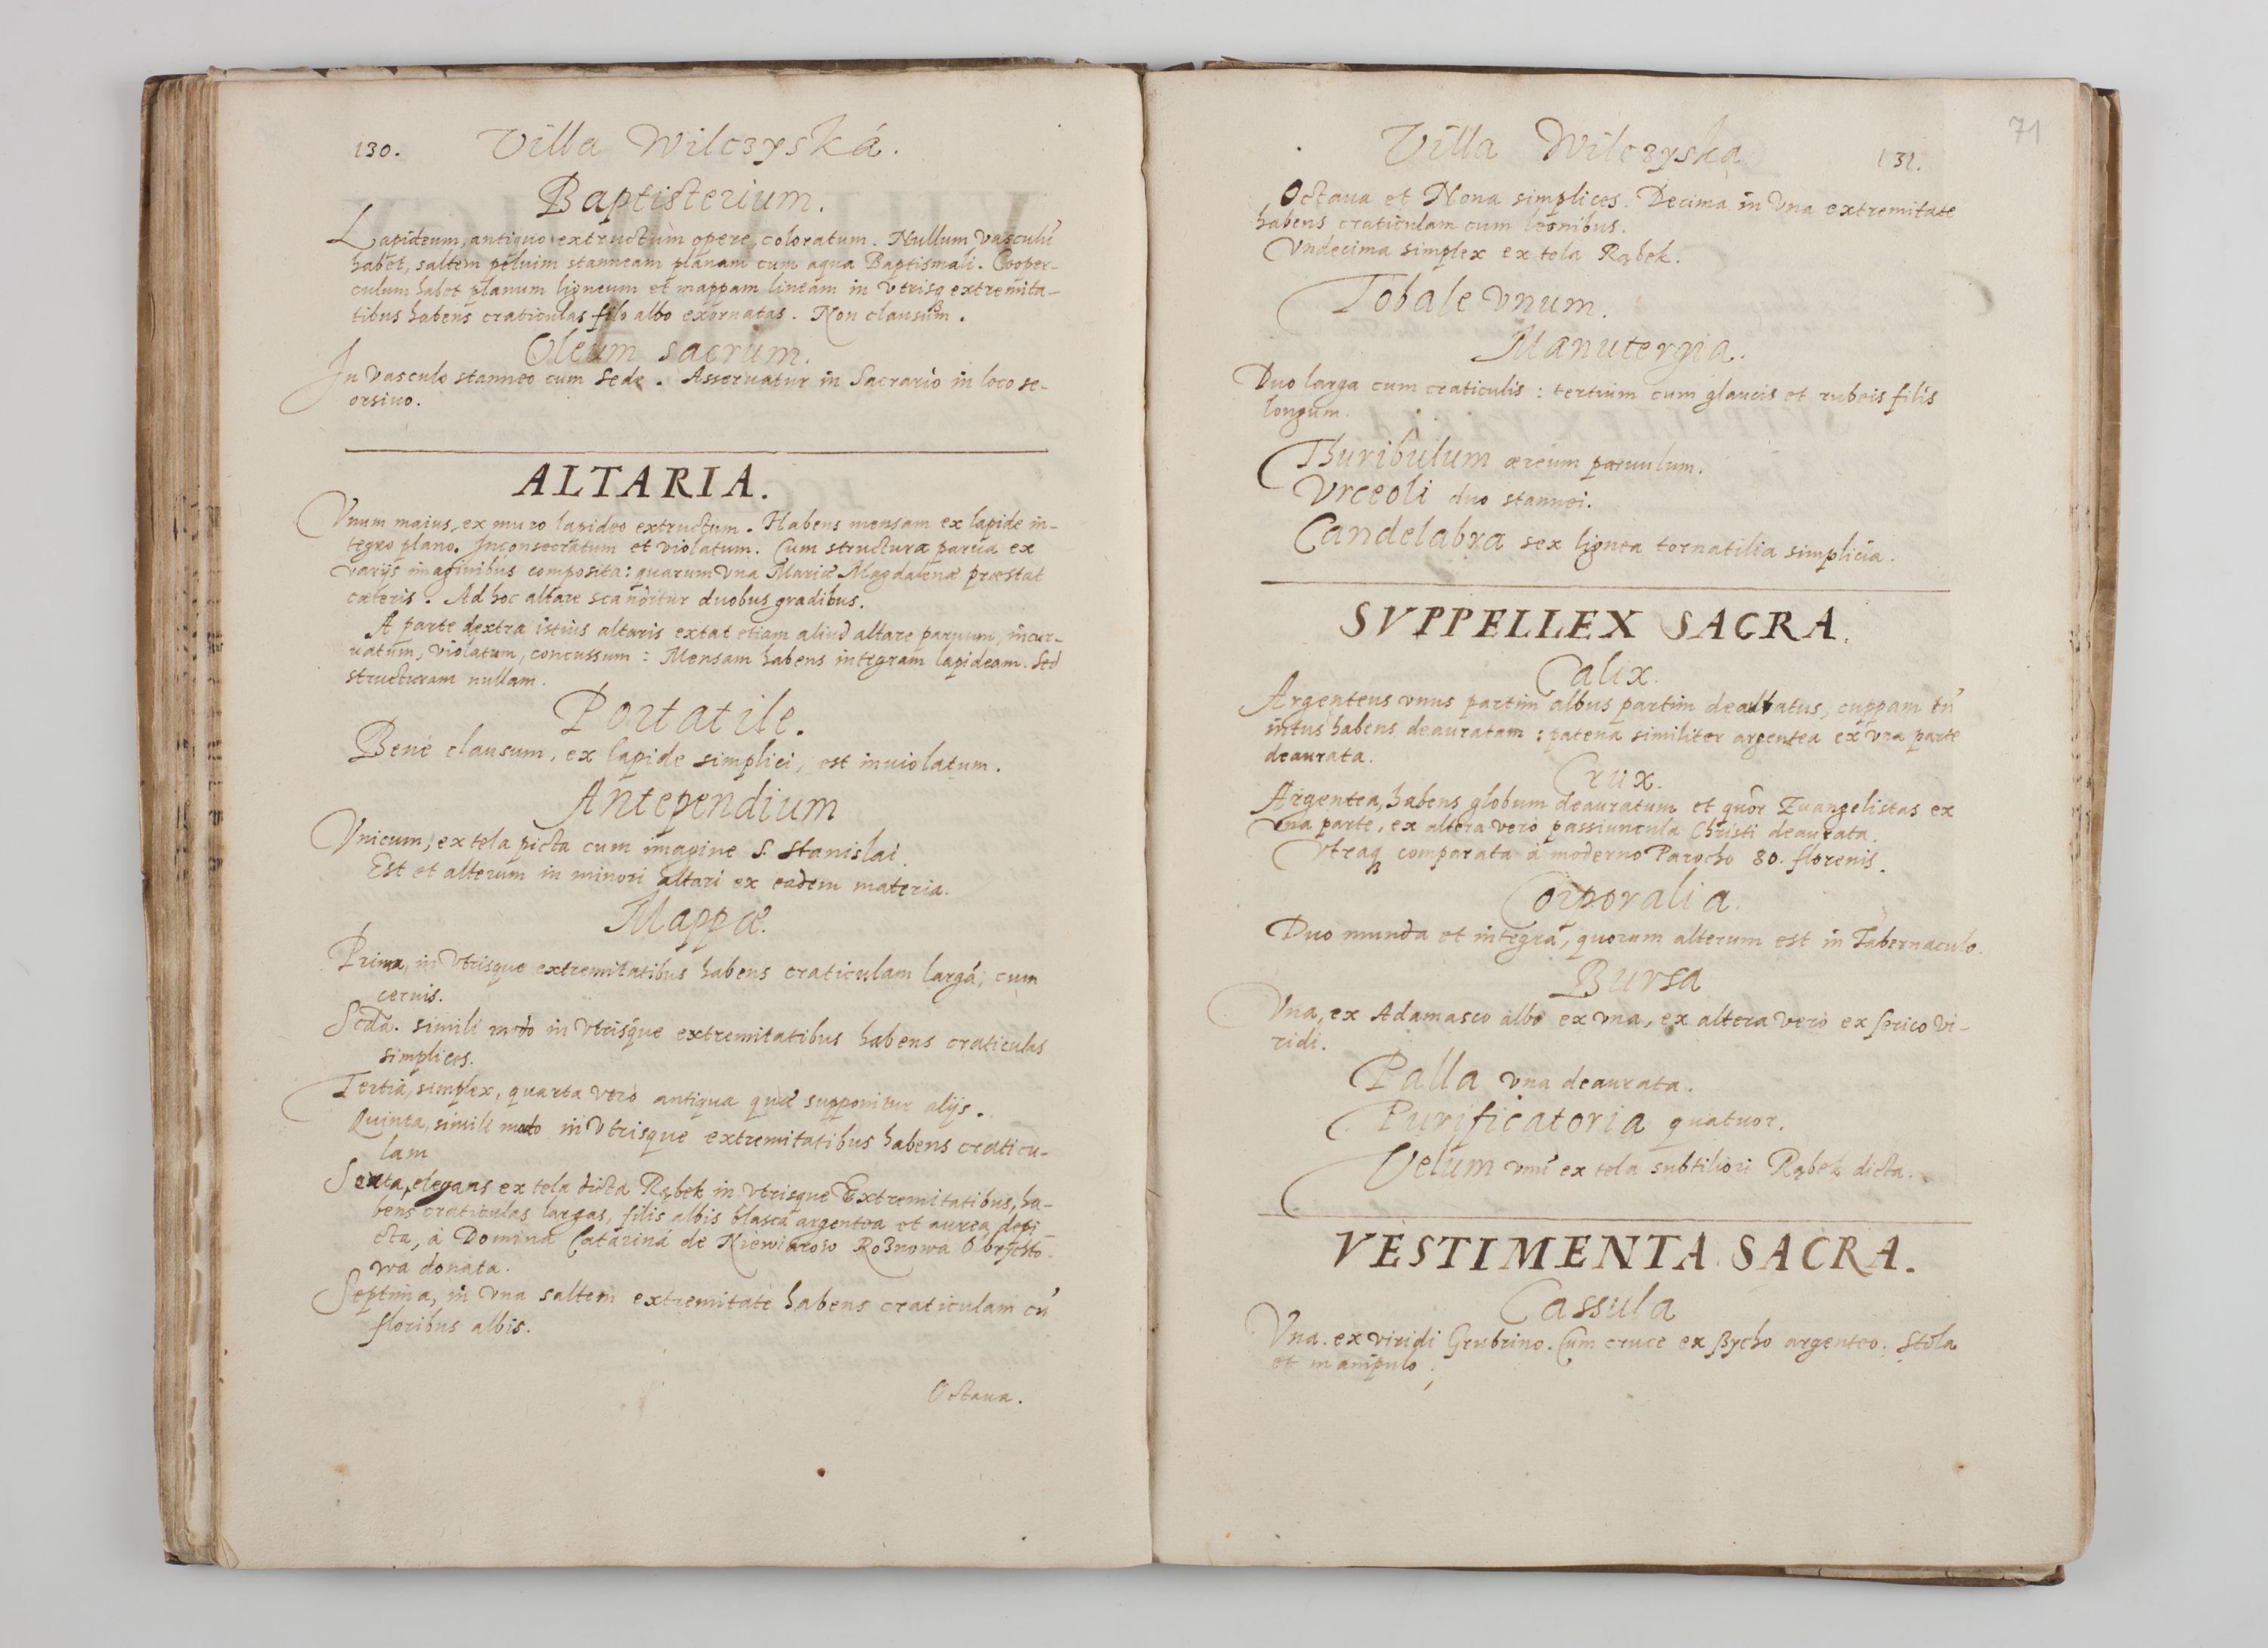 130. Villa Wilczyská.
Baptisterium.
Lapideum, antiquo extructum opere, coloratum. Nullum vasculũ
habet, saltem peluim stanneam planam cum aqua Baptismali. Cooper-
culum habet planum ligneum et mappam lineam in vtrisq extremita-
tibus habens craticulas filo albo exornatas. Non clausum.
Oleum sacrum.
In vasculo stanneo cum sede. Asseruatur in Sacrario in loco se-
orsiuo.
ALTARIA.
Vnum maius, ex muro lapideo extructum. Habens mensam ex lapide in-
tegro plano. Inconsecratum et violatum. Cum structura parua ex
varijs imaginibus composita: quarum vna Mariæ Magdalenæ præstat
cæteris. Ad hoc altare scanditur duobus gradibus.
A parte dextra istius altaris extat etiam aliud altare paruum, incur-
uatum, violatum, concussum: Mensam habens integram lapideam. Sed
structuram nullam.
Portatile.
Bene clausum, ex lapide simplici, est inuiolatum.
Antependium
Vnicum, ex tela picta cum imagine S. Stanislai.
Est et alterum in minori altari ex eadem materia.
Mappæ.
Prima, in vtrisque extremitatibus habens craticulam largã, cum
ceruis.
Scda. simili modo in vtrisque extremitatibus habens craticulas
simplices.
Tertia, simplex, quarta vero antiqua quæ supponitur alijs.
Quinta, simili modo in vtrisque extremitatibus habens craticu-
lam
Sexta, elegans ex tela dicta Rąbek in vtrisque Extremitatibus, ha-
bens craticulas largas, filis albis blasca argentea et aurea, depi-
cta, à Domina Catarina de Niewiarowo Roznowa Obrychto-
wa donata.
Septima, in vna saltem extremitate habens craticulam cũ
floribus albis.
Octaua.
71
Villa Wilczyska 131.
Octaua et Nona simplices. Decima in vna extremitate
habens craticulam cum leonibus.
Vndecima simplex ex tela Rąbek.
Tobale vnum.
Manutergia.
Duo larga cum craticulis: tertium cum glaucis et rubeis filis
longum.
Thuribulum æreum paruulum.
Vrceoli duo stannei.
Candelabra sex lignea tornatilia simplicia.
SVPPELLEX SACRA.
Calix.
Argenteus vnus partim albus partim deauratus, cuppam tñ
intus habens deauratam: patena similiter argentea ex vna parte
deaurata.
Crux.
Argentea, habens globum deauratum et quor Euangelistas ex
vna parte, ex altera vero passiuncula Christi deaurata.
Vtraq comparata à moderno Parocho 80. florenis.
Corporalia.
Duo munda et integra, quorum alterum est in Tabernaculo.
Bursa
Vna, ex Adamasco albo ex vna, ex altera vero ex serico vi-
ridi.
Palla vna deaurata.
Purificatoria quatuor.
Velum vnũ ex tela subtiliori Rąbek dicta.
VESTIMENTA SACRA.
Cassula
Vna. ex viridi Grubrino. Cum cruce ex ßycho argenteo. Stola
et manipulo.